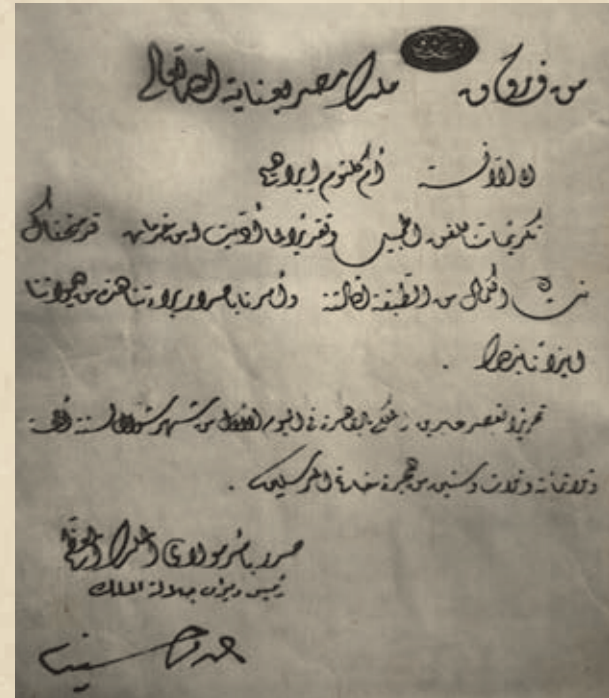 من فاروق ملك مصر بعناية الله تعالى
إلى الآنسة أم كلثوم إبراهيم
تكريما منا للفن الجميل وتقديرا لما أديت من خدمات قد منحناك
نشان الكمال من الطبقة الثالثة وأمرنا بإصدار براءتنا هذه من ديواننا
إيذانا بذلك .
تحريرا بقصر عابدين الملكي بالقاهرة في اليوم الأول من شهر شوال لسنة ألف
وثلاثمائة وثلاث وستين من هجرة خاتم المرسلين .
صدر بأمر مولاي الملك المعظم
رئيس ديوان جلالة الملك